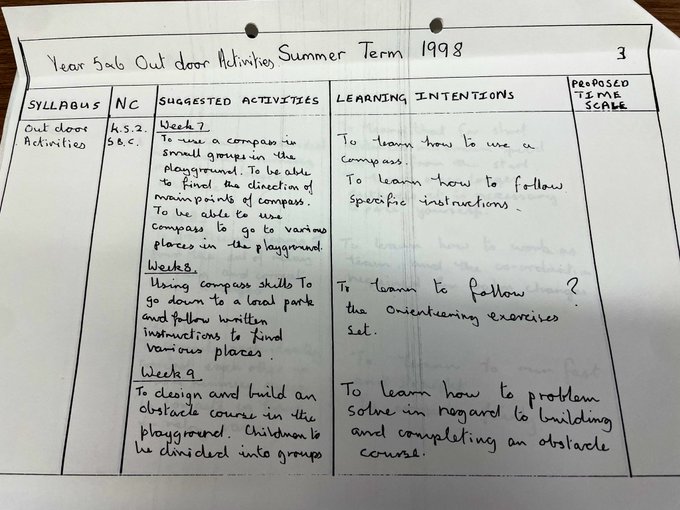 Year 5&6 Out door Activities Summer Term 1998 3
SYLLABUS
NC
SUGGESTED ACTIVITIES
LEARNING INTENTIONS
PROPOSED
TIME
SCALE
Out door
Activities
K.S.2.
5B,C.
Week 7
To use a compass in
small groups in the
playground. To be able
to find the direction of
main points of compass.
To be able to use
compass to go to various
places in the playground.
To learn how to use a
compass.
To learn how to follow
specific instructions.
Week 8.
Using compass skills To
go down to a local park
and follow written
instructions to find
various places.
To learn to follow ?
the Orienteering exercises
set.
Week 9
To design and build an
obstacle course in the
playground. Children to
be divided into groups
To learn how to problem
solve in regard to building
and completing an obstacle
course.